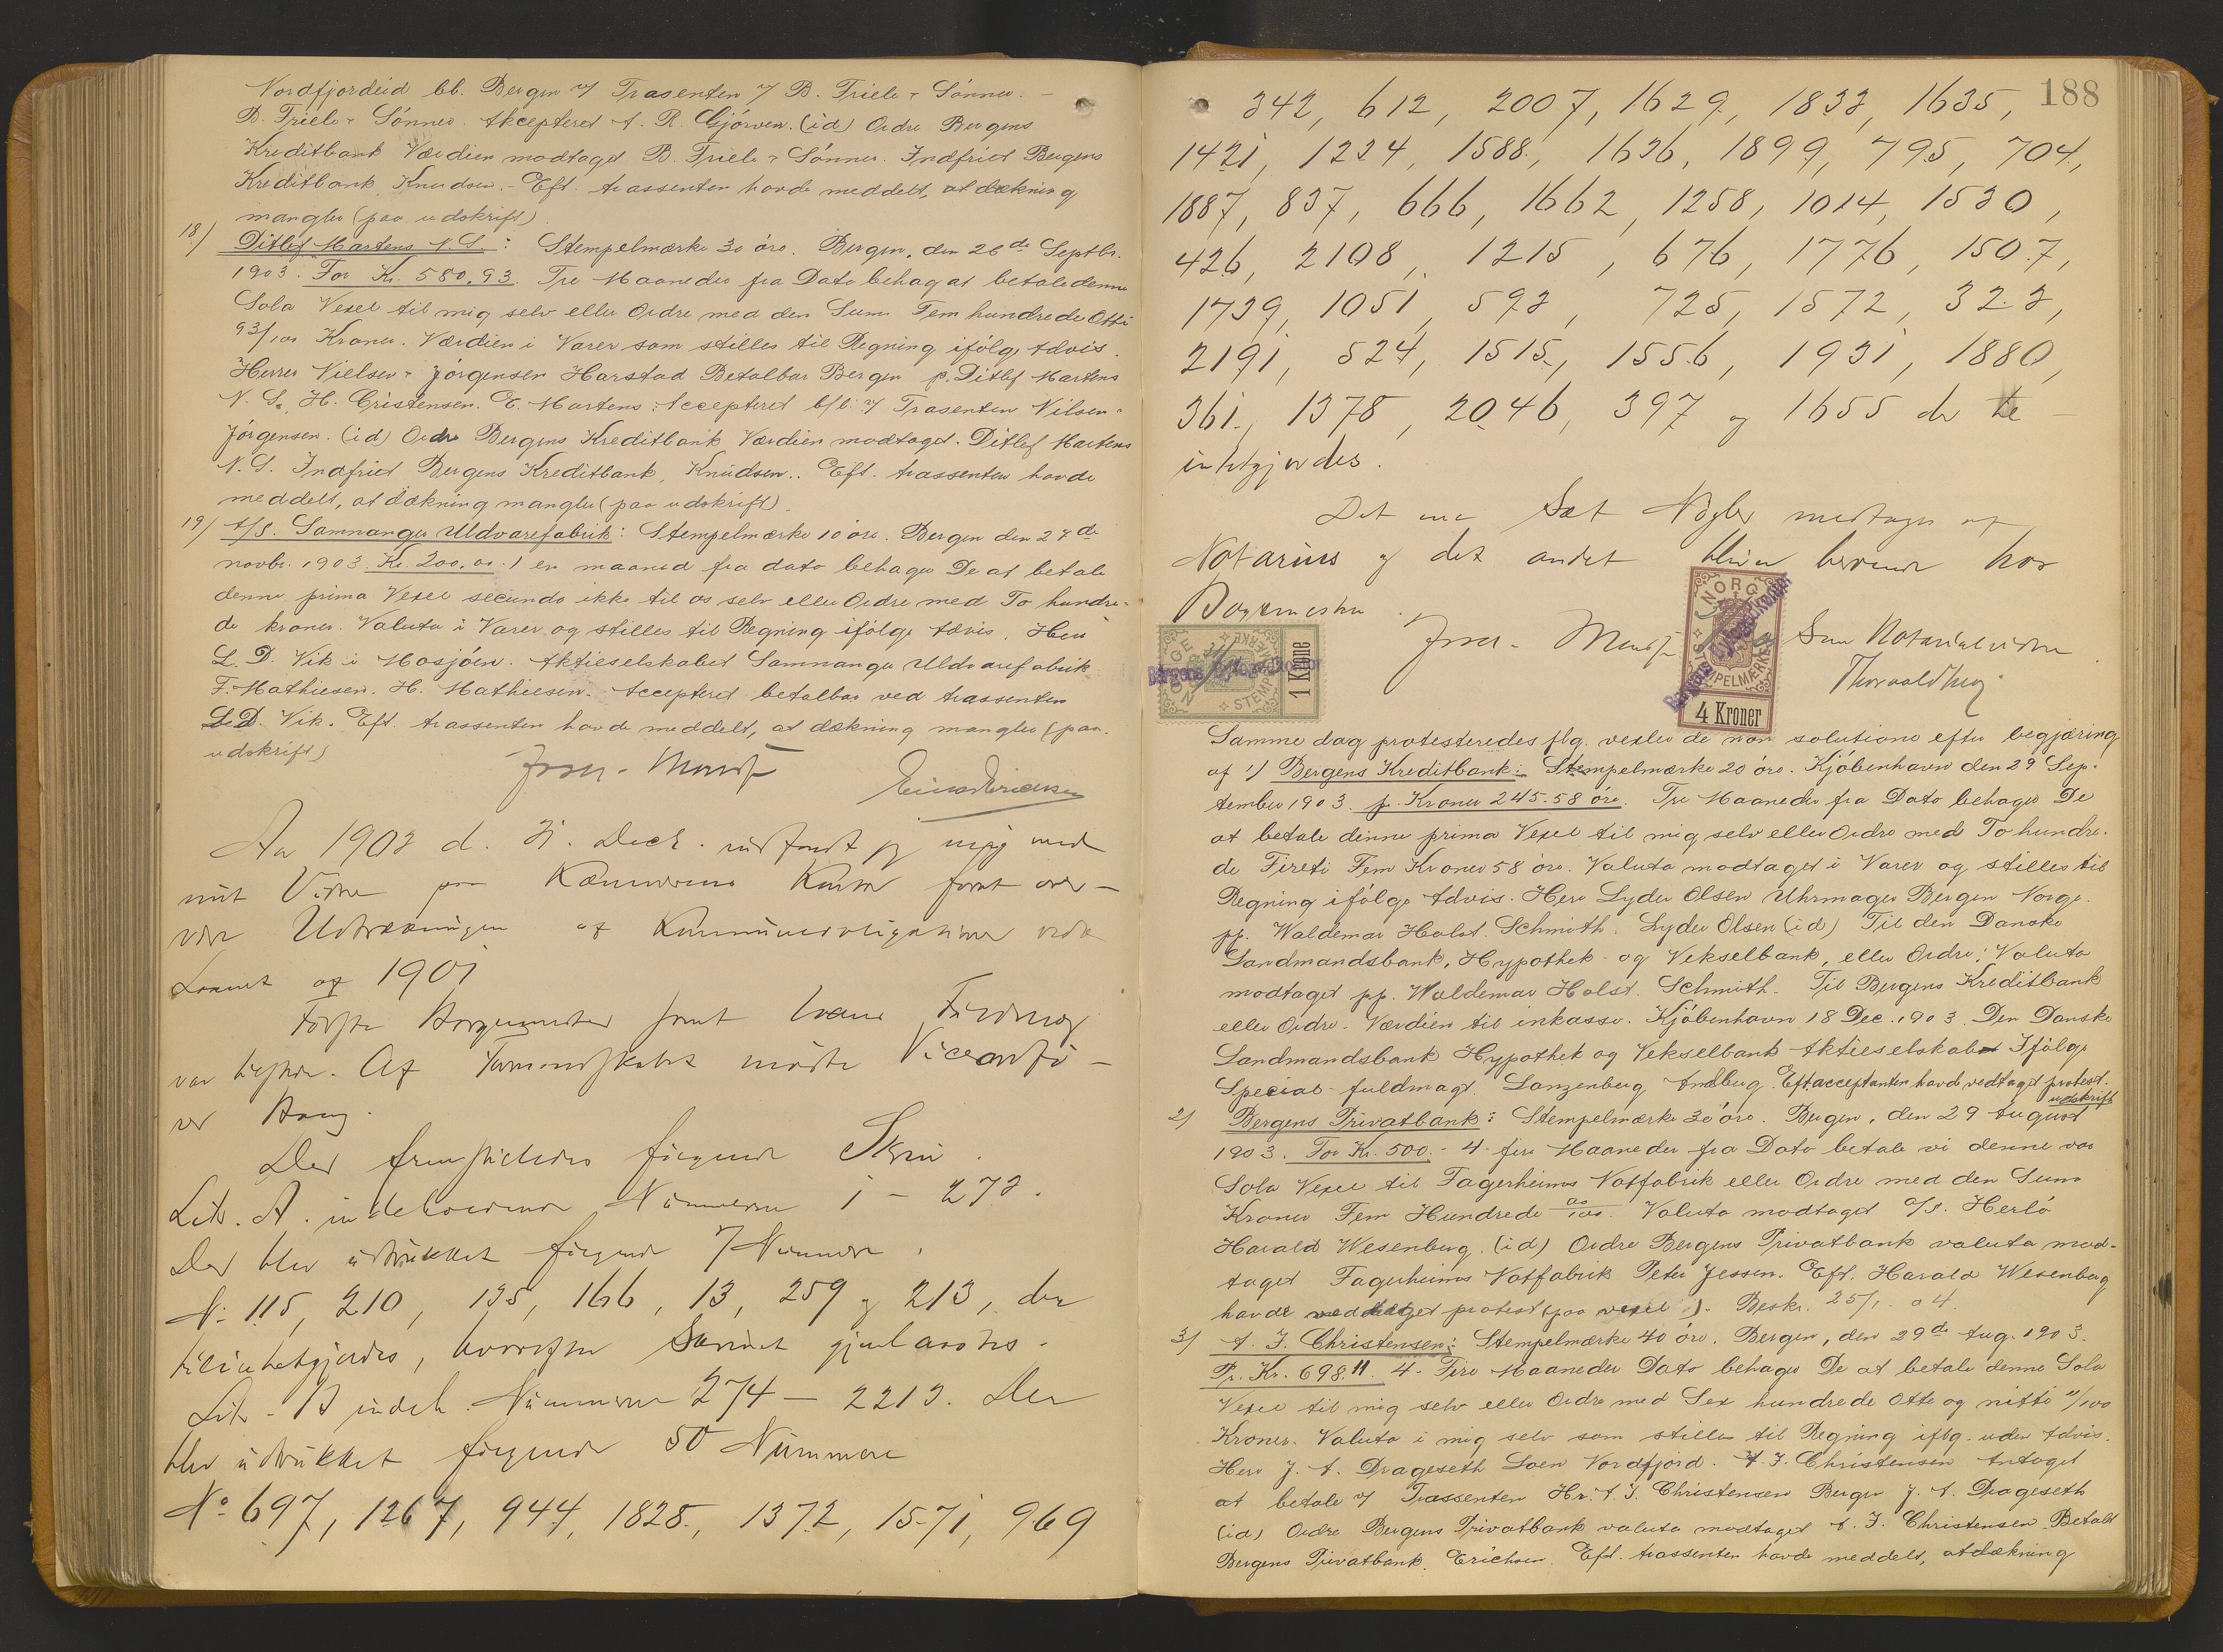 Nordfjordeid bb. Bergen v/ Trasenten v/ B. Friele & Sønner. —
B. Friele & Sønner. Akcepteret A. R. Gjörven. (id) Ordre Bergens
Kreditbank Værdien modtaget B. Friele & Sønner. Indfriet Bergens
Kreditbank Knudsen. - Eft. trassenten havde meddelt, at dækning
mangler (paa udskrift).
18/ Ditlef Martens N. S. : Stempelmærke 30 öre. Bergen, den 26de Septbr.
1903. For Kr. 580.93. Tre Maaneder fra Dato behag at betale denne
Sola Vexel til mig selv eller Ordre med den Sum Fem hundrede Otti
93/100 Kroner. Værdien i Varer som stilles til Regning ifölge Advis.
Herrer Nielsen & Jörgensen Harstad Betalbar Bergen p. Ditlef Martens
N. S., H. Cristensen. E. Martens: Accepteret b/b. v/ Trasenten Nilsen &
Jörgensen. (id) Ordre Bergens Kreditbank Værdien modtaget. Ditlef Martens
N. S. Indfriet Bergens Kreditbank, Knudsen.. Eft. trassenten havde
meddelt, at dækning mangler (paa udskrift).
19/ A/S. Samnanger Uldvarefabrik: Stempelmærke 10 öre. Bergen den 27de
novbr. 1903. Kr. 200,00. 1 en maaned fra dato behager De at betale
denne prima Vexel secunda ikke til os selv eller Ordre med To hundre-
de kroner. Valuta i Varer og stilles til Regning ifölge Advis. Herr
L. D. Vik i Mosjöen. Aktieselskabet Samnanger Uldvarefabrik
F. Mathiesen. H. Mathiesen. Accepteret betalbar ved trassenten
L. D. Vik. Eft. trassenten havde meddelt, at dækning mangler (paa
udskrift)
Aar 1903 d. 31. Decbr. indfandt jeg mig med
mit Vidne paa Kæmnerens Kontor for at over-
være Udtrækningen af Kommuneobligationer vedr
Laanet af 1901
Første Borgermester samt
var tilstede. Af Formandskabet mødte
Der fremstilledes følgende Skrin.
Litr. A. indeholdende Numerne 1 - 273.
Der blev udtrukket følgende 7 Numere.
No 115, 210, 135, 166, 13, 259 og 213, der
tilintetgjordes, hvorefter Skrinet gjenlaastes.
Litr. B indeh. Numerne 274 - 2213. Der
blev udtrukket følgende 50 Nummere
No 697, 1267, 944, 1828, 1372, 1571, 969
188
342, 612, 2007, 1629, 1833, 1635,
1421, 1234, 1588, 1636, 1899, 795, 704,
1887, 837, 666, 1662, 1258, 1014, 1530,
426, 2108, 1215, 676, 1776, 1507,
1739, 1051, 593, 725, 1572, 323,
2191, 524, 1515, 1556, 1931, 1880,
361, 1378, 2046, 397 og 1655 der til
intetgjordes.
Det ene Sæt Nøgler modtages af
Notarius og det andet bliver beroende hos
Borgermester.
NORGE STEMPELMÆRKE 1 Krone
NORGE STEMPELMÆRKE 4 Kroner
Som Notarialvidne
Samme dag protesteredes flg. vexler de non solutione efter begjæring
af 1/ Bergens Kreditbank: Stempelmærke 20 öre. Kjöbenhavn den 29 Sep-
tember 1903. p. Kroner 245.58 öre. Tre Maaneder fra Dato behager De
at betale denne prima Vexel til mig selv eller Ordre med To hundre-
de Fireti Fem Kroner 58 öre. Valuta modtaget i Varer og stilles til
Regning ifölge Advis. Herr Lyder Olsen Uhrmager Bergen Norge.
pp. Waldemar Holst. Schmith. Lyder Olsen (id) Til den Danske
Landmandsbank, Hypothek- og Vekselbank, eller Ordre: Valuta
modtaget pp. Waldemar Holst. Schmith. Til Bergens Kreditbank
eller Ordre. Værdien til inkasso. Kjöbenhavn 18 Dec. 1903. Den Danske
Landmandsbank Hypothek og Vekselbank Aktieselskabet Ifölge
Special-fuldmagt. Lanzenberg Amberg. Eft. acceptanten havde vedtaget protest.
udskrift
2/ Bergens Privatbank: Stempelmærke 30 öre. Bergen, den 29 August
1903. For Kr. 500.- 4 fire Maaneder fra Dato betale vi denne vor
Sola Vexel til Fagerheims Notfabrik eller Ordre med den Sum
Kroner Fem Hundrede 00/100. Valuta modtaget A/S. Herlö
Harald Wesenberg. (id) Ordre Bergens Privatbank valuta mod-
taget Fagerheims Notfabrik Peter Jessen. Eft. Harald Wesenberg
havde vedtaget protest (paa vexel). Beskr. 25/1. 04.
3/ A. J. Christensen: Stempelmærke 40 öre. Bergen, den 29de Aug. 1903.
Pr. Kr. 698.11. 4. Fire Maaneder Dato behager De at betale denne Sola
Vexel til mig selv eller Ordre med Sex hundrede Otte og nitti 11/100
Kroner. Valuta i mig selv som stilles til Regning iflg. uden Advis.
Herr J. A. Drageseth Loen Nordfjord. A. J. Christensen Antaget
at betale v/ Trassenten Hr. A. J. Christensen Bergen J. A. Drageseth
(id) Ordre Bergens Privatbank valuta modtaget A. J. Christensen Betalt
Bergens Privatbank. Erichsen. Eft. trassenten havde meddelt, at dækning